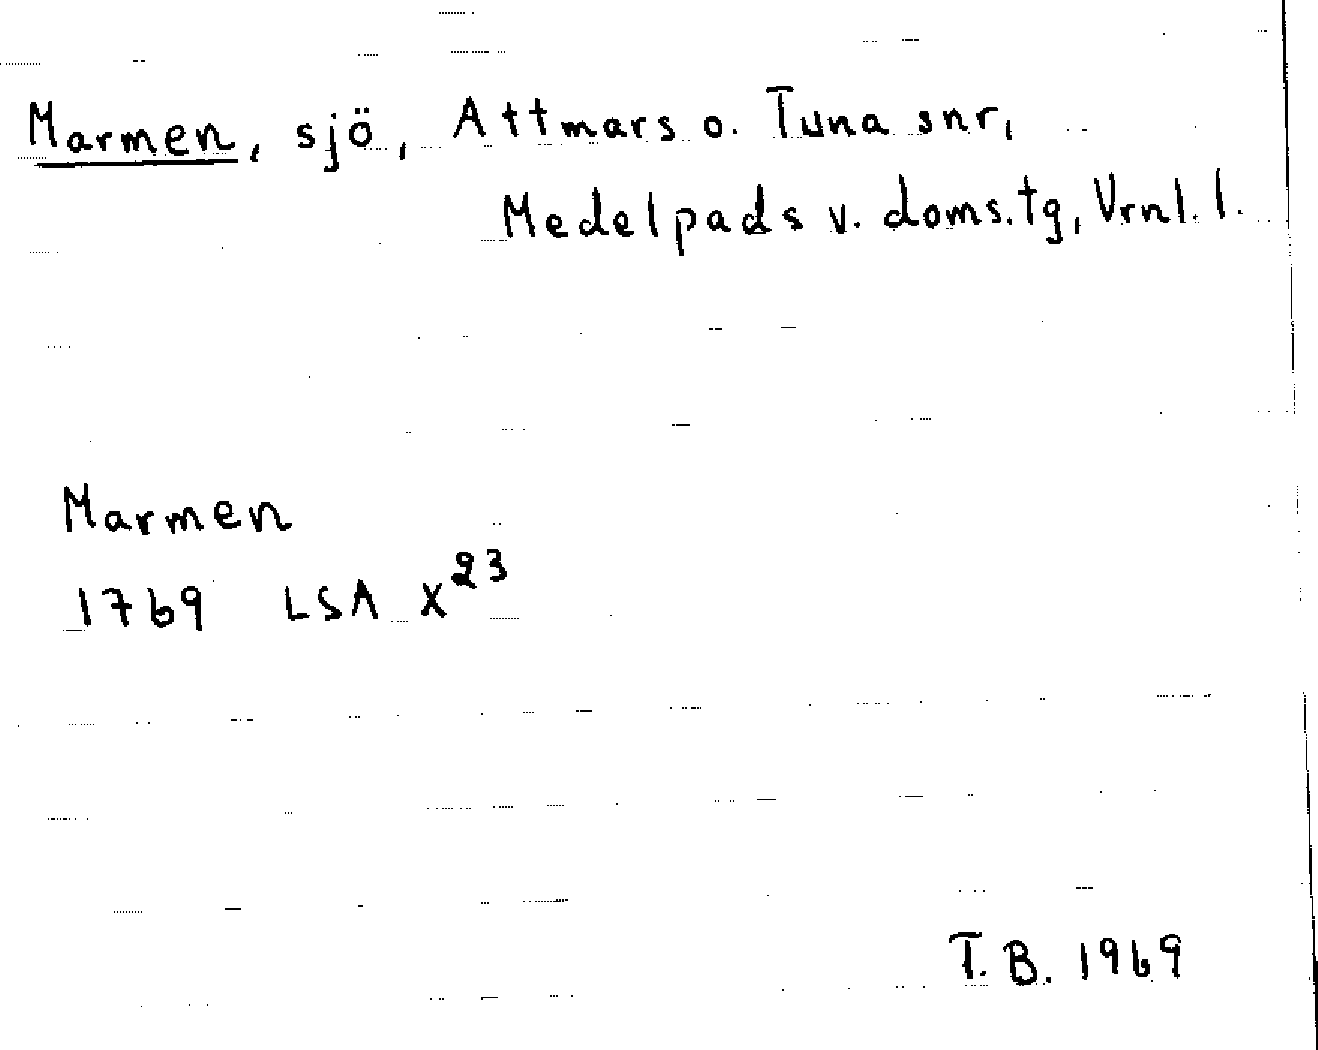 Marmen, sjö, Attmars o. Tuna snr,
Medelpads v. doms.tg, Vrnl. l.
Marmen
1769 LSA X²³
T. B. 1969